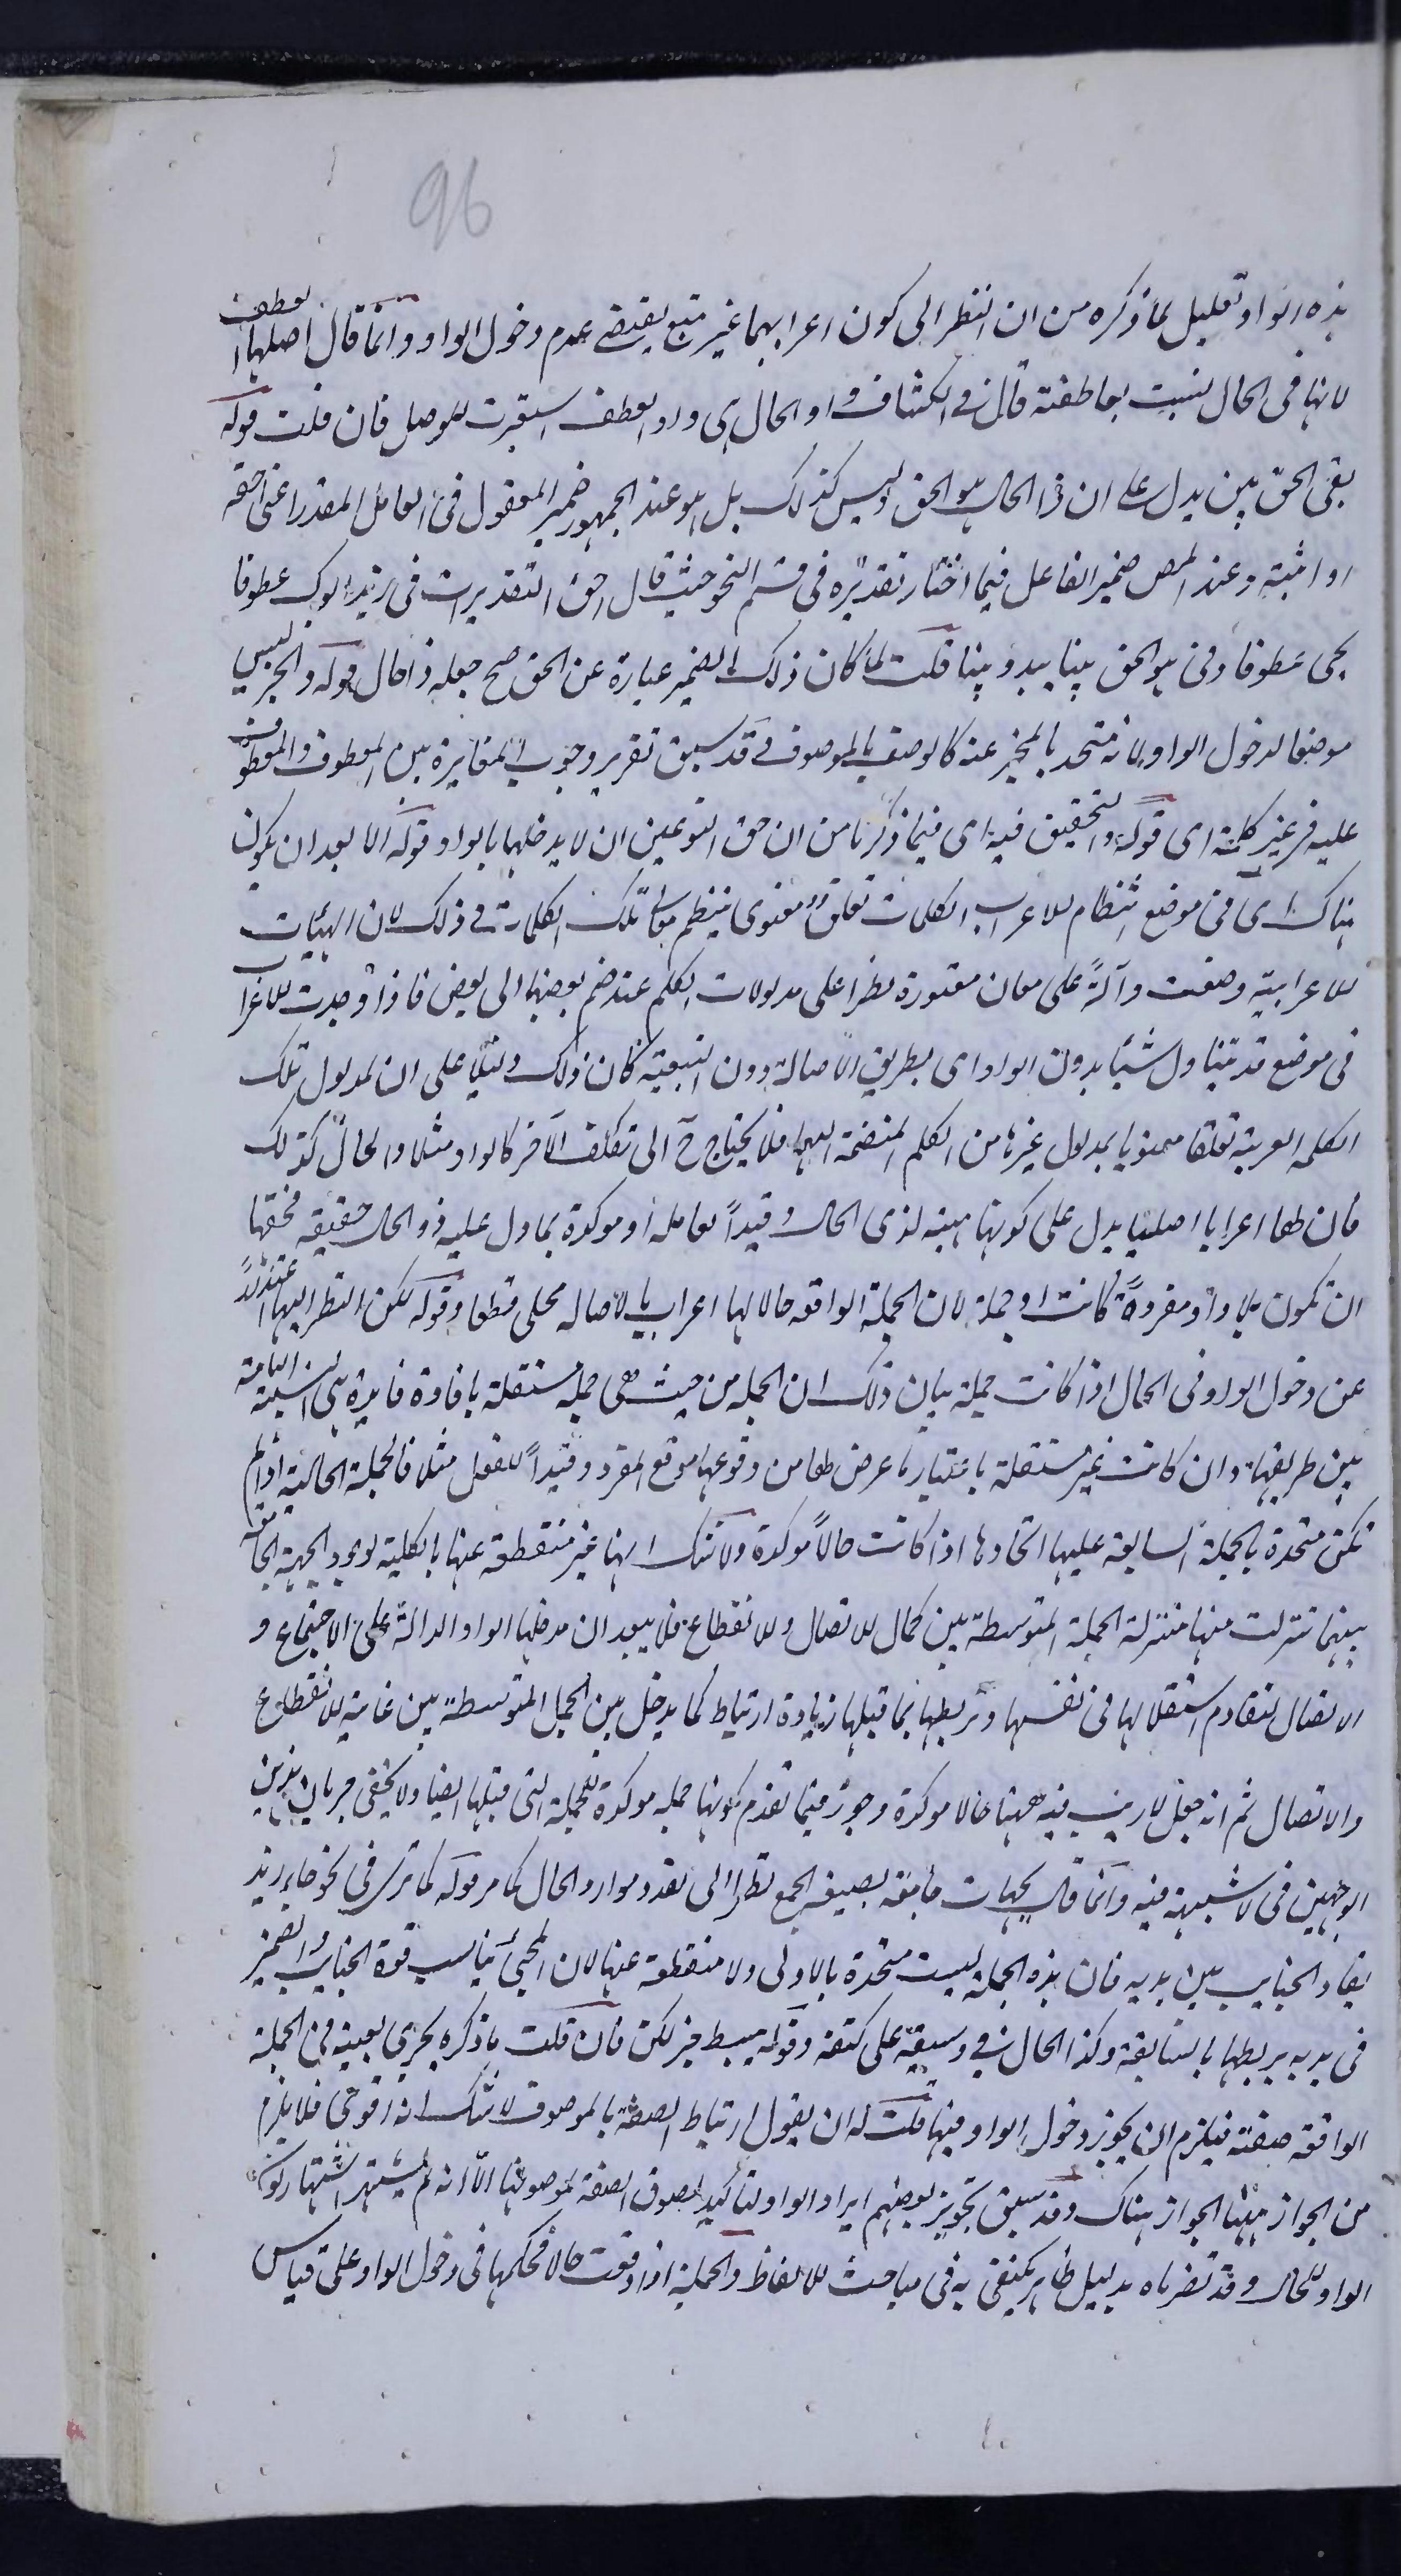 96
هذه الواو تعليل لما ذكره من ان النظر الى كون اعرابهما غير تبع يقتضى عدم دخول الواو وانما قال اصلها العطف
لانها فى الحال ليست بعاطفة قال فى الكشاف واو الحال هى واو العطف استعيرت للوصل فان قلت قوله
بقى الحق بين يدل على ان ذا الحال هو الحق وليس كذلك بل هو عند الجمهور ضمير المفعول فى العامل المقدر اعنى احقه
او اثبته وعند المص ضمير الفاعل فيما اختار تقديره فى قسم النحو حيث قال احق التقديرات فى زيد ابوك عطوفا
يجى عطوفا وفى هو الحق بينا يبدو بينا قلت لما كان ذلك الضمير عبارة عن الحق صح جعله ذا حال قوله والخبر ليس
موضعا لدخول الواو لانه متحد بالمخبر عنه كالوصف بالموصوف وقد سبق تقرير وجوب المغايرة بين المعطوف والمعطوف
عليه فى غير كلمة اى قوله والتحقيق فيه اى فيما ذكرنا من ان حق النوعين ان لا يدخلها بالواو قوله الا بعد ان يكون
هناك اى فى موضع انتظام الاعراب الكلمات تعلق معنوى ينتظم معانى تلك الكلمات فى ذلك لان الهيئات
الاعرابية وضعت دالة على معان معتورة نظرا على مدلولات الكلم عند ضم بعضها الى بعض فاذا وجدت الاعراب
فى موضع قد تناول شيئا بدون الواو اى بطريق الاصالة دون التبعية كان ذلك دليلا على ان لمدلول تلك
الكلمة العربية تعلقا معنويا بمدلول غيرها من الكلم المنضمة اليها فلا يحتاج ح الى تكلف الاخر كالواو مثلا والحال كذلك
فان لها اعرابا اصليا يدل على كونها هيئة لذى الحال وقيدا لعامله او موكدة بما دل عليه ذو الحال حقيقة فحقها
ان تكون بلا واو مفردة كانت او جملة لان الجملة الواقعة حالا لها اعراب بالاصالة محلى قطعا وقوله لكن النظر اليها
عن دخول الواو فى الحال اذا كانت جملة بيان ذلك ان الجملة من حيث هى جملة مستقلة بافادة فايدة هى النسبة التامة
بين طرفيها وان كانت غير مستقلة باعتبار ما عرض لها من وقوعها موقع المفرد وقيدا للفعل مثلا فالجملة الحالية اذا لم
تكن متحدة بالجملة السابقة عليها اتحادها اذا كانت حالا موكدة ولا شك انها غير منقطعة عنها بالكلية لوجود الجهة الجامعة
بينهما تنزلت منها منزلة الجملة المتوسطة بين كمال الاتصال والانقطاع فلا يبعد ان يدخلها الواو الدالة على الاجتماع و
الاتصال لتقادم استقلالها فى نفسها وتربطها بما قبلها زيادة ارتباط كما يدخل بين الجمل المتوسطة بين غاية الانقطاع
والاتصال ثم انه جعل لا ريب فيه ههنا حالا موكدة وجوز فيما تقدم كونها جملة موكدة للجملة التى قبلها ايضا ولا يخفى جريان هذين
الوجهين فى لا شبهة فيه وانما قال بجهات جامعة بصيغة الجمع نظرا الى تعدد موارد الحال كما مر قوله كما ترى فى نحو جاء زيد
يقاد الجنايب بين يديه فان هذه الجملة ليست متحدة بالاولى ولا منقطعة عنها لان المجى يناسب قود الجنايب والضمير
فى يديه يربطها بالسابقة وكذا الحال فى وسيفه على كتفه وقوله يبسط خبر لكن فان قلت ما ذكره يجرى بعينه فى الجملة
الواقعة صفة فيلزم ان يجوز دخول الواو فيها قلت له ان يقول ارتباط الصفة بالموصوف لا شك انه اقوى فلا يلزم
من الجواز ههنا الجواز هناك وقد سبق تجويز بعضهم ايراد الواو لتاكيد لصوق الصفة لموصوفها الا انه لم يشتهر اشتهار كون
الواو للحال وقد نصرناه بدليل ظاهر يكتفى به فى مباحث الالفاظ والجملة اذا وقعت حالا فحكمها فى دخول الواو على قياس